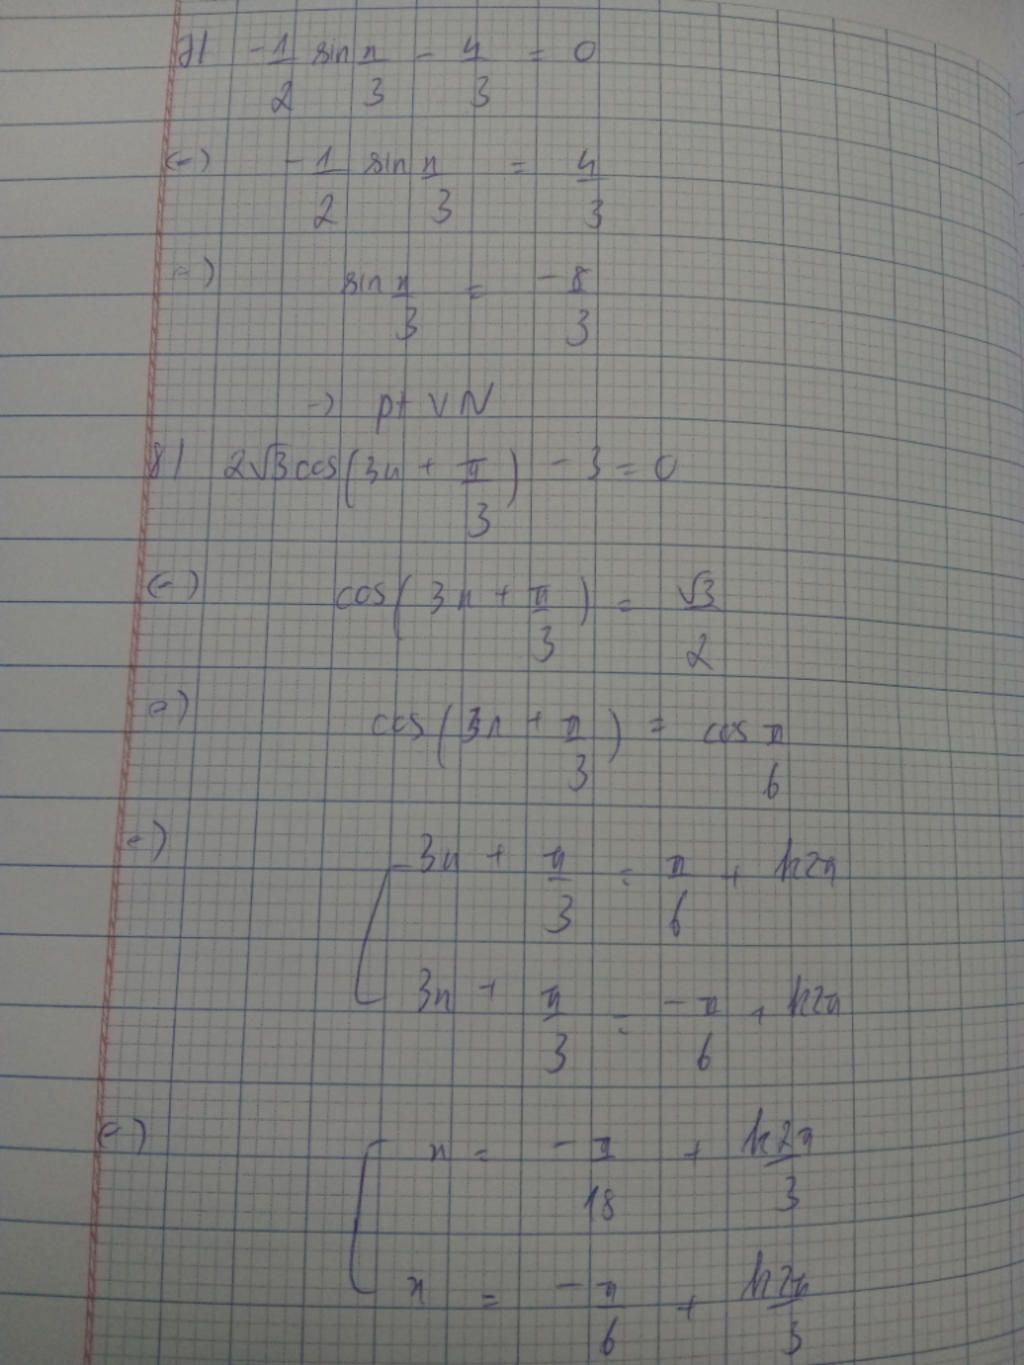 7) -1/2 sin x/3 - 4/3 = 0
(=) -1/2 sin x/3 = 4/3
(=) sin x/3 = -8/3
-> pt VN
8) 2√3 cos(3x + π/3) - 3 = 0
(=) cos(3x + π/3) = √3/2
(=) cos(3x + π/3) = cos π/6
(=) [ 3x + π/3 = π/6 + k2π
3x + π/3 = -π/6 + k2π
(=) [ x = -π/18 + k2π/3
x = -π/6 + k2π/3